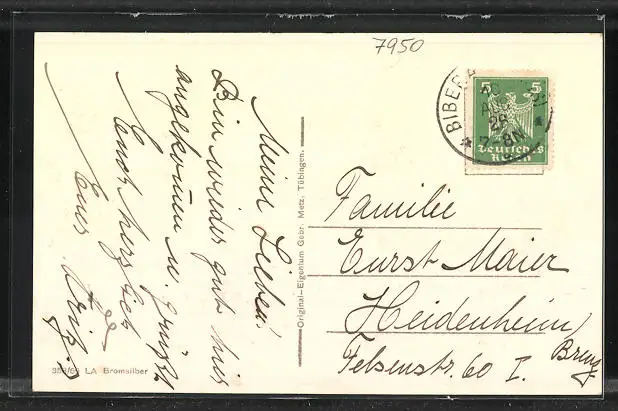 7950
Meine Lieben!
Bin wieder gut hier
angekommen u. grüßt
Euch herzlich
Euer
Original-Eigentum Gebr. Metz, Tübingen.
LA Bromsilber
BIBER
26
5 5
Deutsches
Reich
Familie
Ernst Maier
Heidenheim
Brenz
Felsenstr. 60 I.